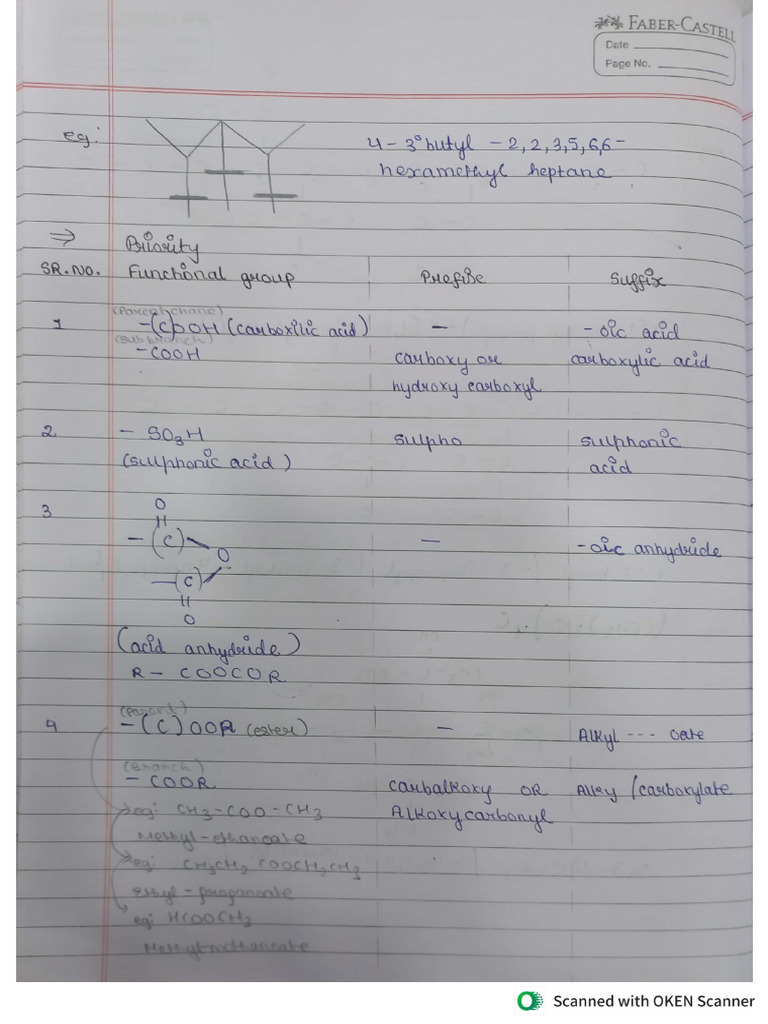 FABER-CASTELL
Date
Page No.
eg:
4 - 3° butyl - 2,2,3,5,6,6-
hexamethyl heptane
⇒ Priority
SR.NO. Functional group Prefix Suffix
(Parent chane)
1 -(C)OOH (carboxilic acid) - - oic acid
(subbranch)
-COOH carboxy or carboxylic acid
hydroxy carboxyl
2 - SO3H sulpho sulphonic
(sulphonic acid) acid
3 O
-(C) O - -oic anhydride
-(C)
O
(acid anhydride)
R - COOCOR
(Parent)
4 -(C)OOR (ester) - Alkyl --- oate
(Branch)
- COOR carbalkoxy OR Alky /carboxylate
eg: CH3-COO-CH3 Alkoxycarbonyl
Methyl-ethanoate
eg: CH3CH2 COOCH2CH3
Ethyl - propanoate
eg: HCOOCH3
Methyl-methanoate
Scanned with OKEN Scanner